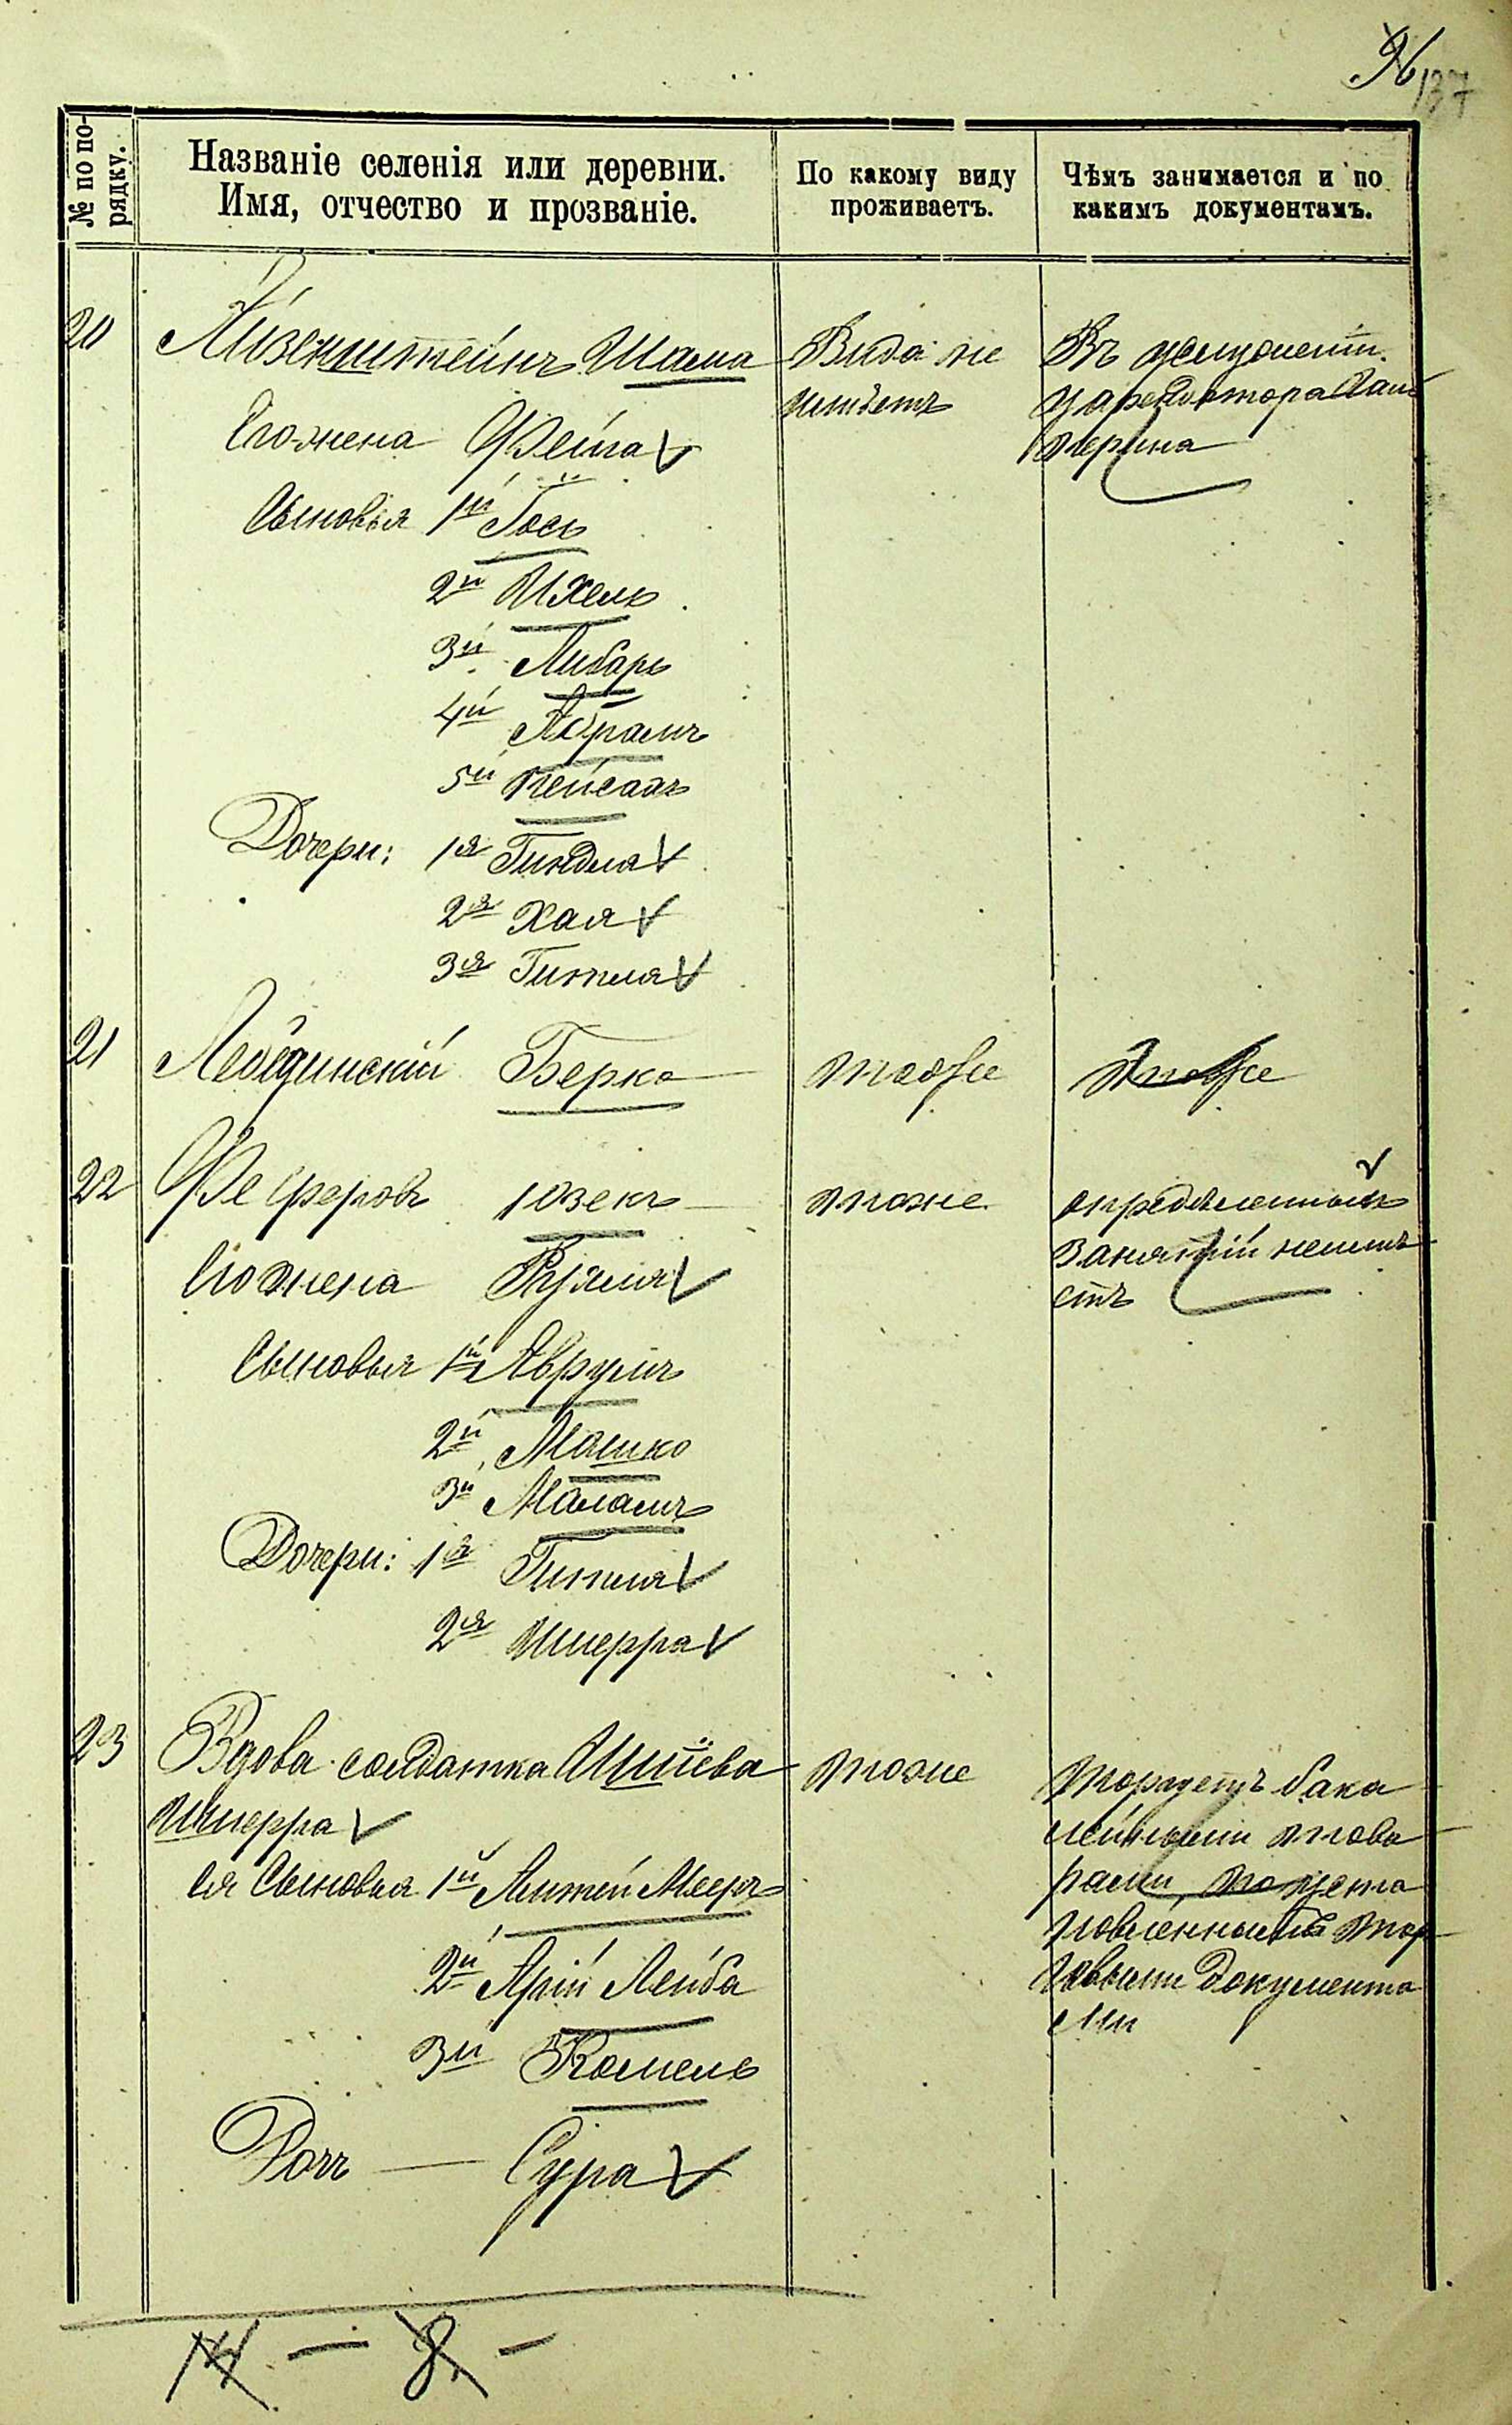 137
№ по по-
рядку.
Названіе селенія или деревни.
Имя, отчество и прозваніе.
По какому виду
проживаетъ.
Чѣмъ занимается и по
какимъ документамъ.
20
Айзенштейнъ Шама
Вида не
имѣетъ
Въ услуженіи
у арендатора
Его жена Фейга
Сыновья 1й Гось
2й Ихель
3й Либарь
4й Абрамъ
5й Пейсахъ
Дочери: 1я Гиндля
2я Хая
3я Гитля
21
Лебединскій Берко
тоже
тоже
22
Феферовъ Юзекъ
тоже
опредѣленныхъ
занятій неимѣ
етъ
Его жена Рухля
Сыновья 1й Аврумъ
2й Мошко
3й Маламъ
Дочери: 1я Гитля
2я Шперра
23
Вдова солдатка
Шперра
тоже
Торгуетъ бака
лейными това
рами, по уста
новленнымъ тор
говыми документа
ми
Ея Сыновья 1й Мееръ
2й Арій Лейба
3й Комель
Дочь — Сура
14 — 8 —